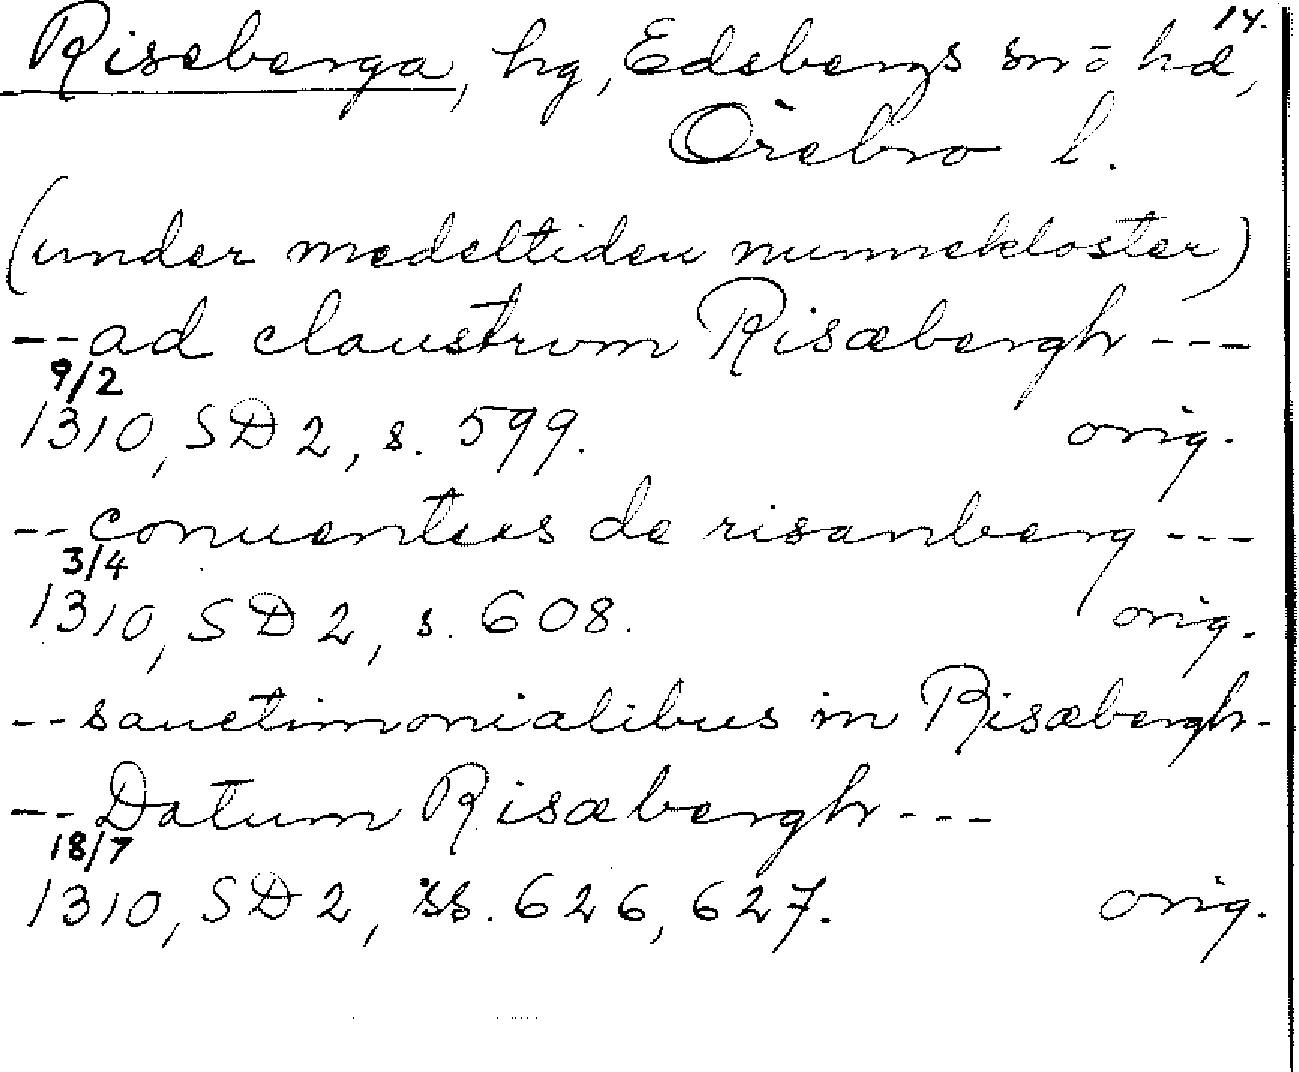 14.
Riseberga, hg, Edsbergs sn o hd,
Örebro l.
(under medeltiden nunnekloster)
-- ad claustrum Risæbergh ---
9/2
1310, SD 2, s. 599. orig.
-- conuentus de risanberg ---
3/4
1310, SD 2, s. 608. orig.
-- sanctimonialibus in Risæbergh -
-- Datum Risæbergh ---
18/7
1310, SD 2, ss. 626, 627. orig.